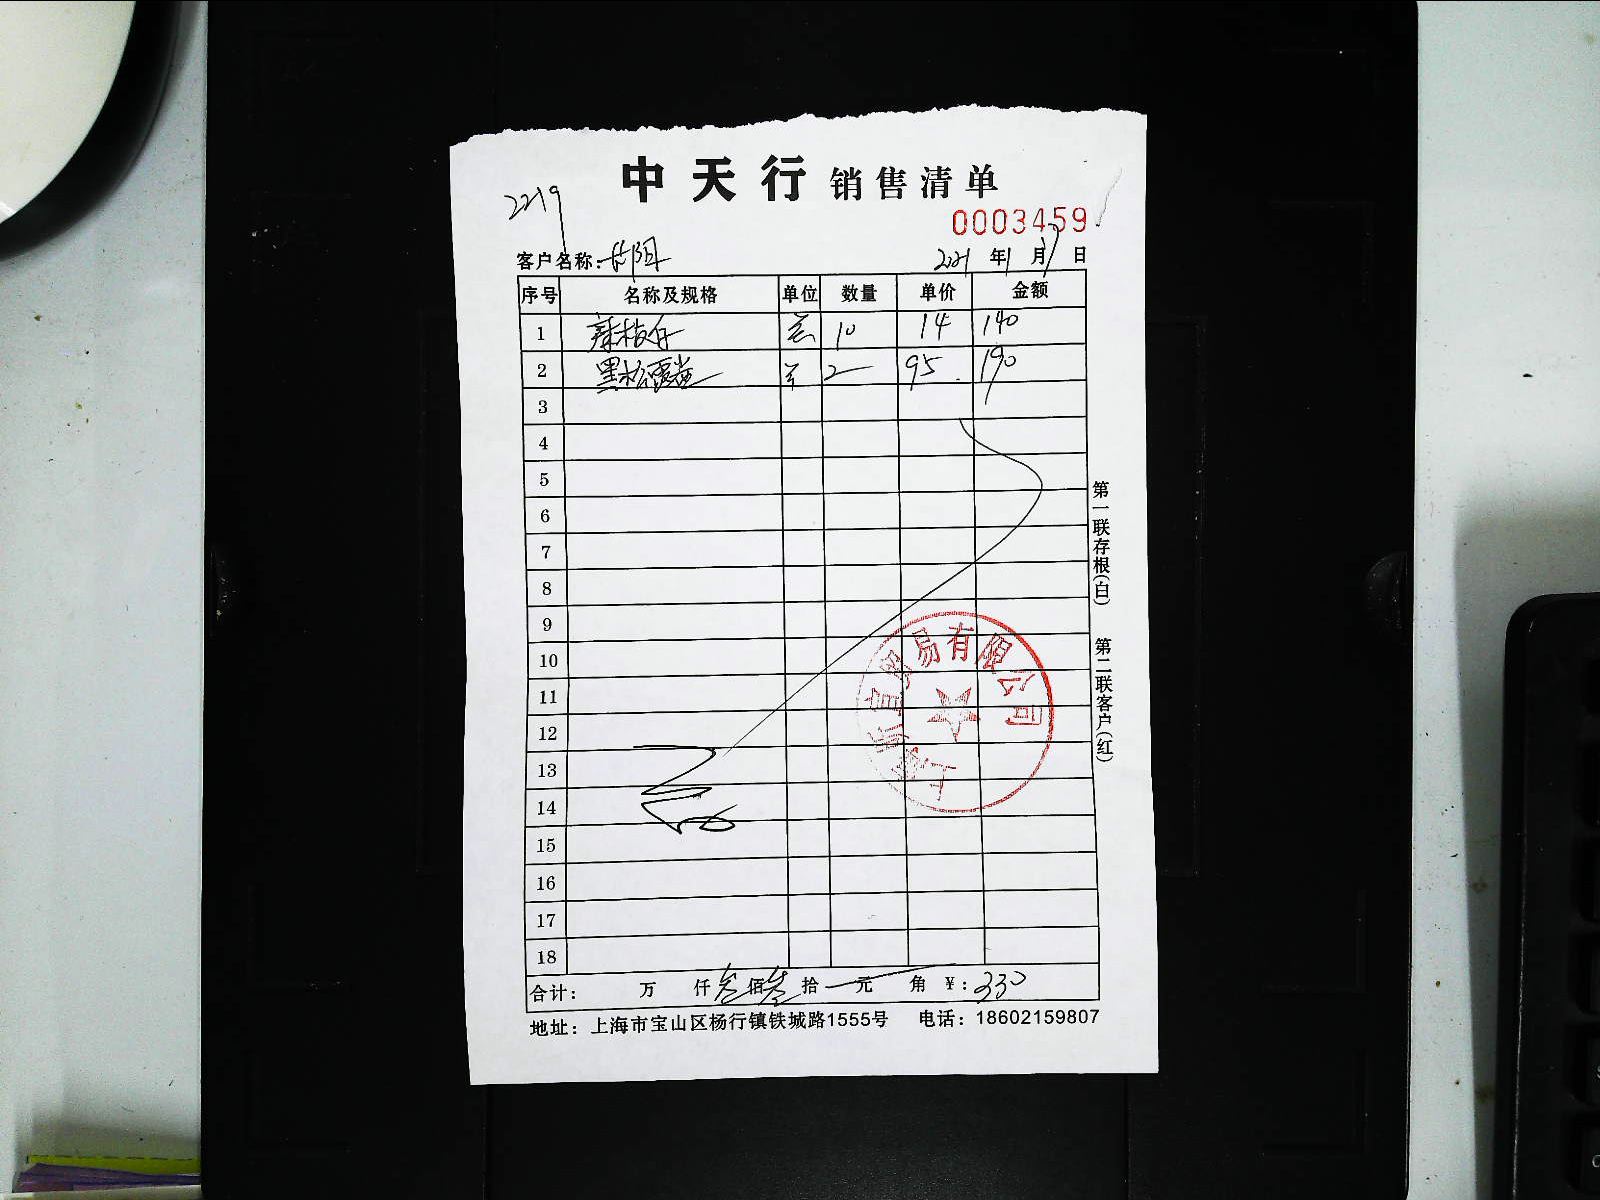 中天行销售清单
2219
0003459
客户名称:
2021年1月17日
序号 名称及规格 单位 数量 单价 金额
1 10 14 140
2 2 95 190
3
4
5
6
7
8
9
10
11
12
13
14
15
16
17
18
合计: 万 仟叁佰叁拾 元 角 ¥:330
地址:上海市宝山区杨行镇铁城路1555号 电话:18602159807
第一联存根(白) 第二联客户(红)
贸易有限公司